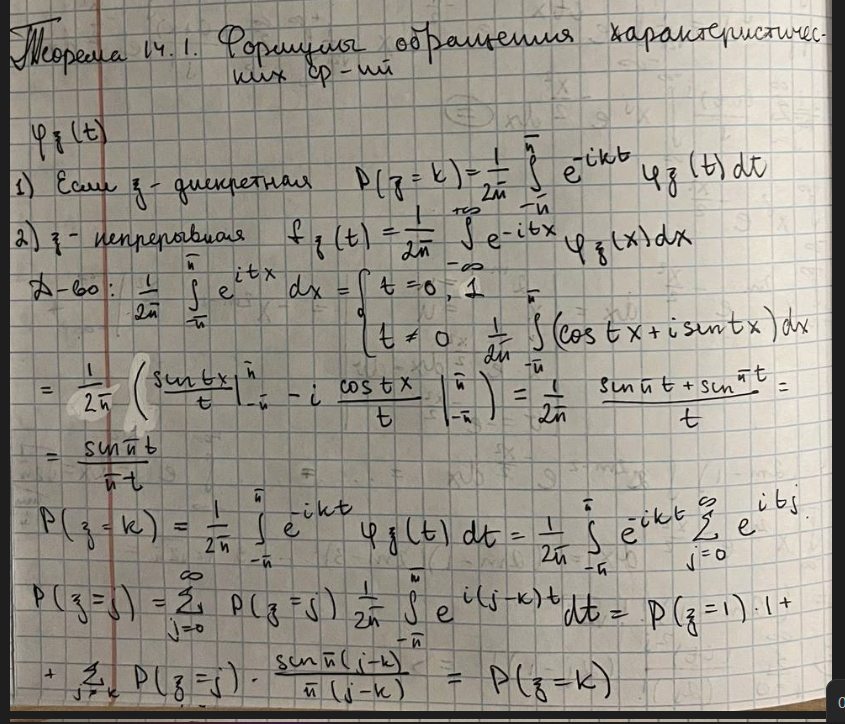 Теорема 14.1. Формулы обращения характеристичес-
ких ф-ий
φ_ξ(t)
1) Если ξ - дискретная P(ξ=k) = 1/2π ∫_{-π}^{π} e^{-ikt} φ_ξ(t) dt
2) ξ - непрерывная f_ξ(t) = 1/2π ∫_{-∞}^{+∞} e^{-itx} φ_ξ(x) dx
Д-во: 1/2π ∫_{-π}^{π} e^{itx} dx = { t = 0, 1
t ≠ 0 1/2π ∫_{-π}^{π} (cos tx + i sin tx) dx
= 1/2π ( sin tx / t |_{-π}^{π} - i cos tx / t |_{-π}^{π} ) = 1/2π (sin πt + sin πt) / t =
= sin πt / πt
P(ξ=k) = 1/2π ∫_{-π}^{π} e^{-ikt} φ_ξ(t) dt = 1/2π ∫_{-π}^{π} e^{-ikt} Σ_{j=0}^{∞} e^{itj} ·
P(ξ=j) = Σ_{j=0}^{∞} P(ξ=j) 1/2π ∫_{-π}^{π} e^{i(j-k)t} dt = P(ξ=1)·1 +
+ Σ_{j≠k} P(ξ=j) · sin π(j-k) / π(j-k) = P(ξ=k)